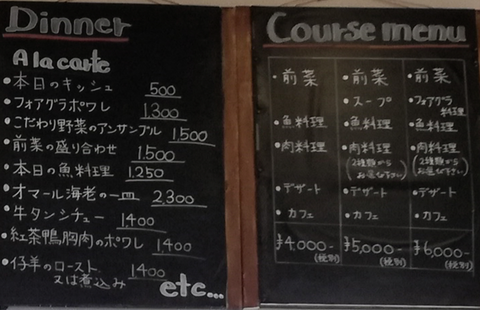 Dinner
A la carte
•本日のキッシュ 500
•フォアグラポワレ 1,300
•こだわり野菜のアンサンブル 1,500
•前菜の盛り合わせ 1,500
•本日の魚料理 1,250
•オマール海老の一皿 2,300
•牛タンシチュー 1,400
•紅茶鴨胸肉のポワレ 1400
•仔羊のロースト 1400
又は煮込み
etc...
Course menu
•前菜
•魚料理
•肉料理
•デザート
•カフェ
¥4,000-
(税別)
•前菜
•スープ
•魚料理
•肉料理
(2種類から
お選び下さい)
•デザート
•カフェ
¥5,000-
(税別)
•前菜
•フォアグラ
料理
•魚料理
•肉料理
(2種類から
お選び下さい)
•デザート
•カフェ
¥6,000-
(税別)